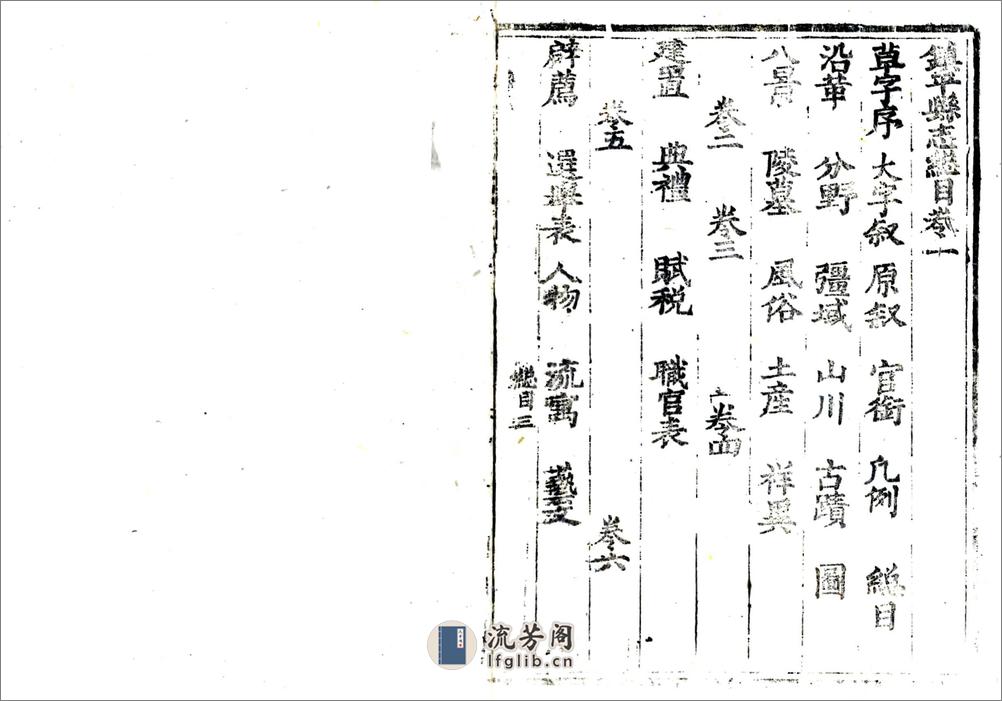 鎮平縣志總目卷一
草字序 大字叙 原叙 官銜 凡例 總目
沿革 分野 彊域 山川 古蹟 圖
八景 陵墓 風俗 土産 祥異
卷二 卷三 卷四
建置 典禮 賦税 職官表
卷五 卷六
辟薦 選舉表 人物 流寓 藝文
總目 三
流芳阁
lfglib.cn